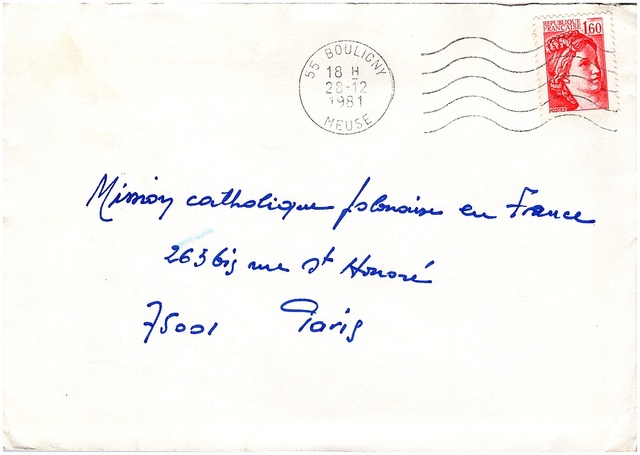 55 BOULIGNY
18 H
28-12
1981
MEUSE
REPUBLIQUE
FRANCAISE
1,60
POSTES
Mission catholique polonaise en France
263 bis rue St Honoré
75001 Paris